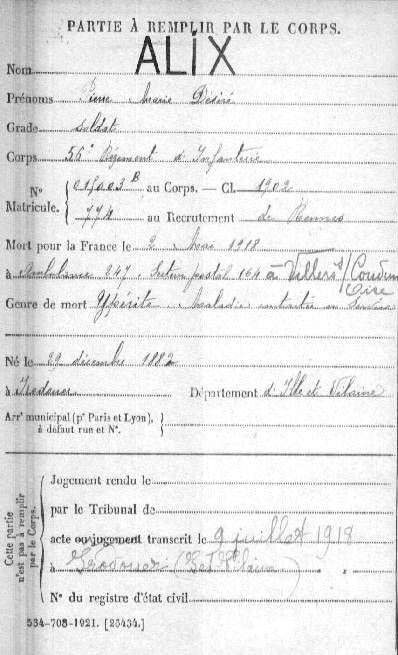 PARTIE À REMPLIR PAR LE CORPS.
Nom ALIX
Prénoms Pierre Marie Désiré
Grade soldat
Corps 56e Régiment d'Infanterie
N° Matricule. { 015003 B au Corps. — Cl. 1902
774 au Recrutement de Rennes
Mort pour la France le 2 Mai 1918
à Ambulance 247 Secteur postal 164 à Villers s/ Coudun
Oise
Genre de mort Ypérite. Maladie contractée en Service
Né le 29 décembre 1882
à Irodouer Département d'Ille et Vilaine
Arrt municipal (pr Paris et Lyon), }
à défaut rue et N°.
Cette partie n'est pas à remplir par le Corps.
Jugement rendu le
par le Tribunal de
acte ou jugement transcrit le 9 juillet 1918
à Irodouer (Ille et Vilaine)
N° du registre d'état civil
534-708-1921. [23434.]